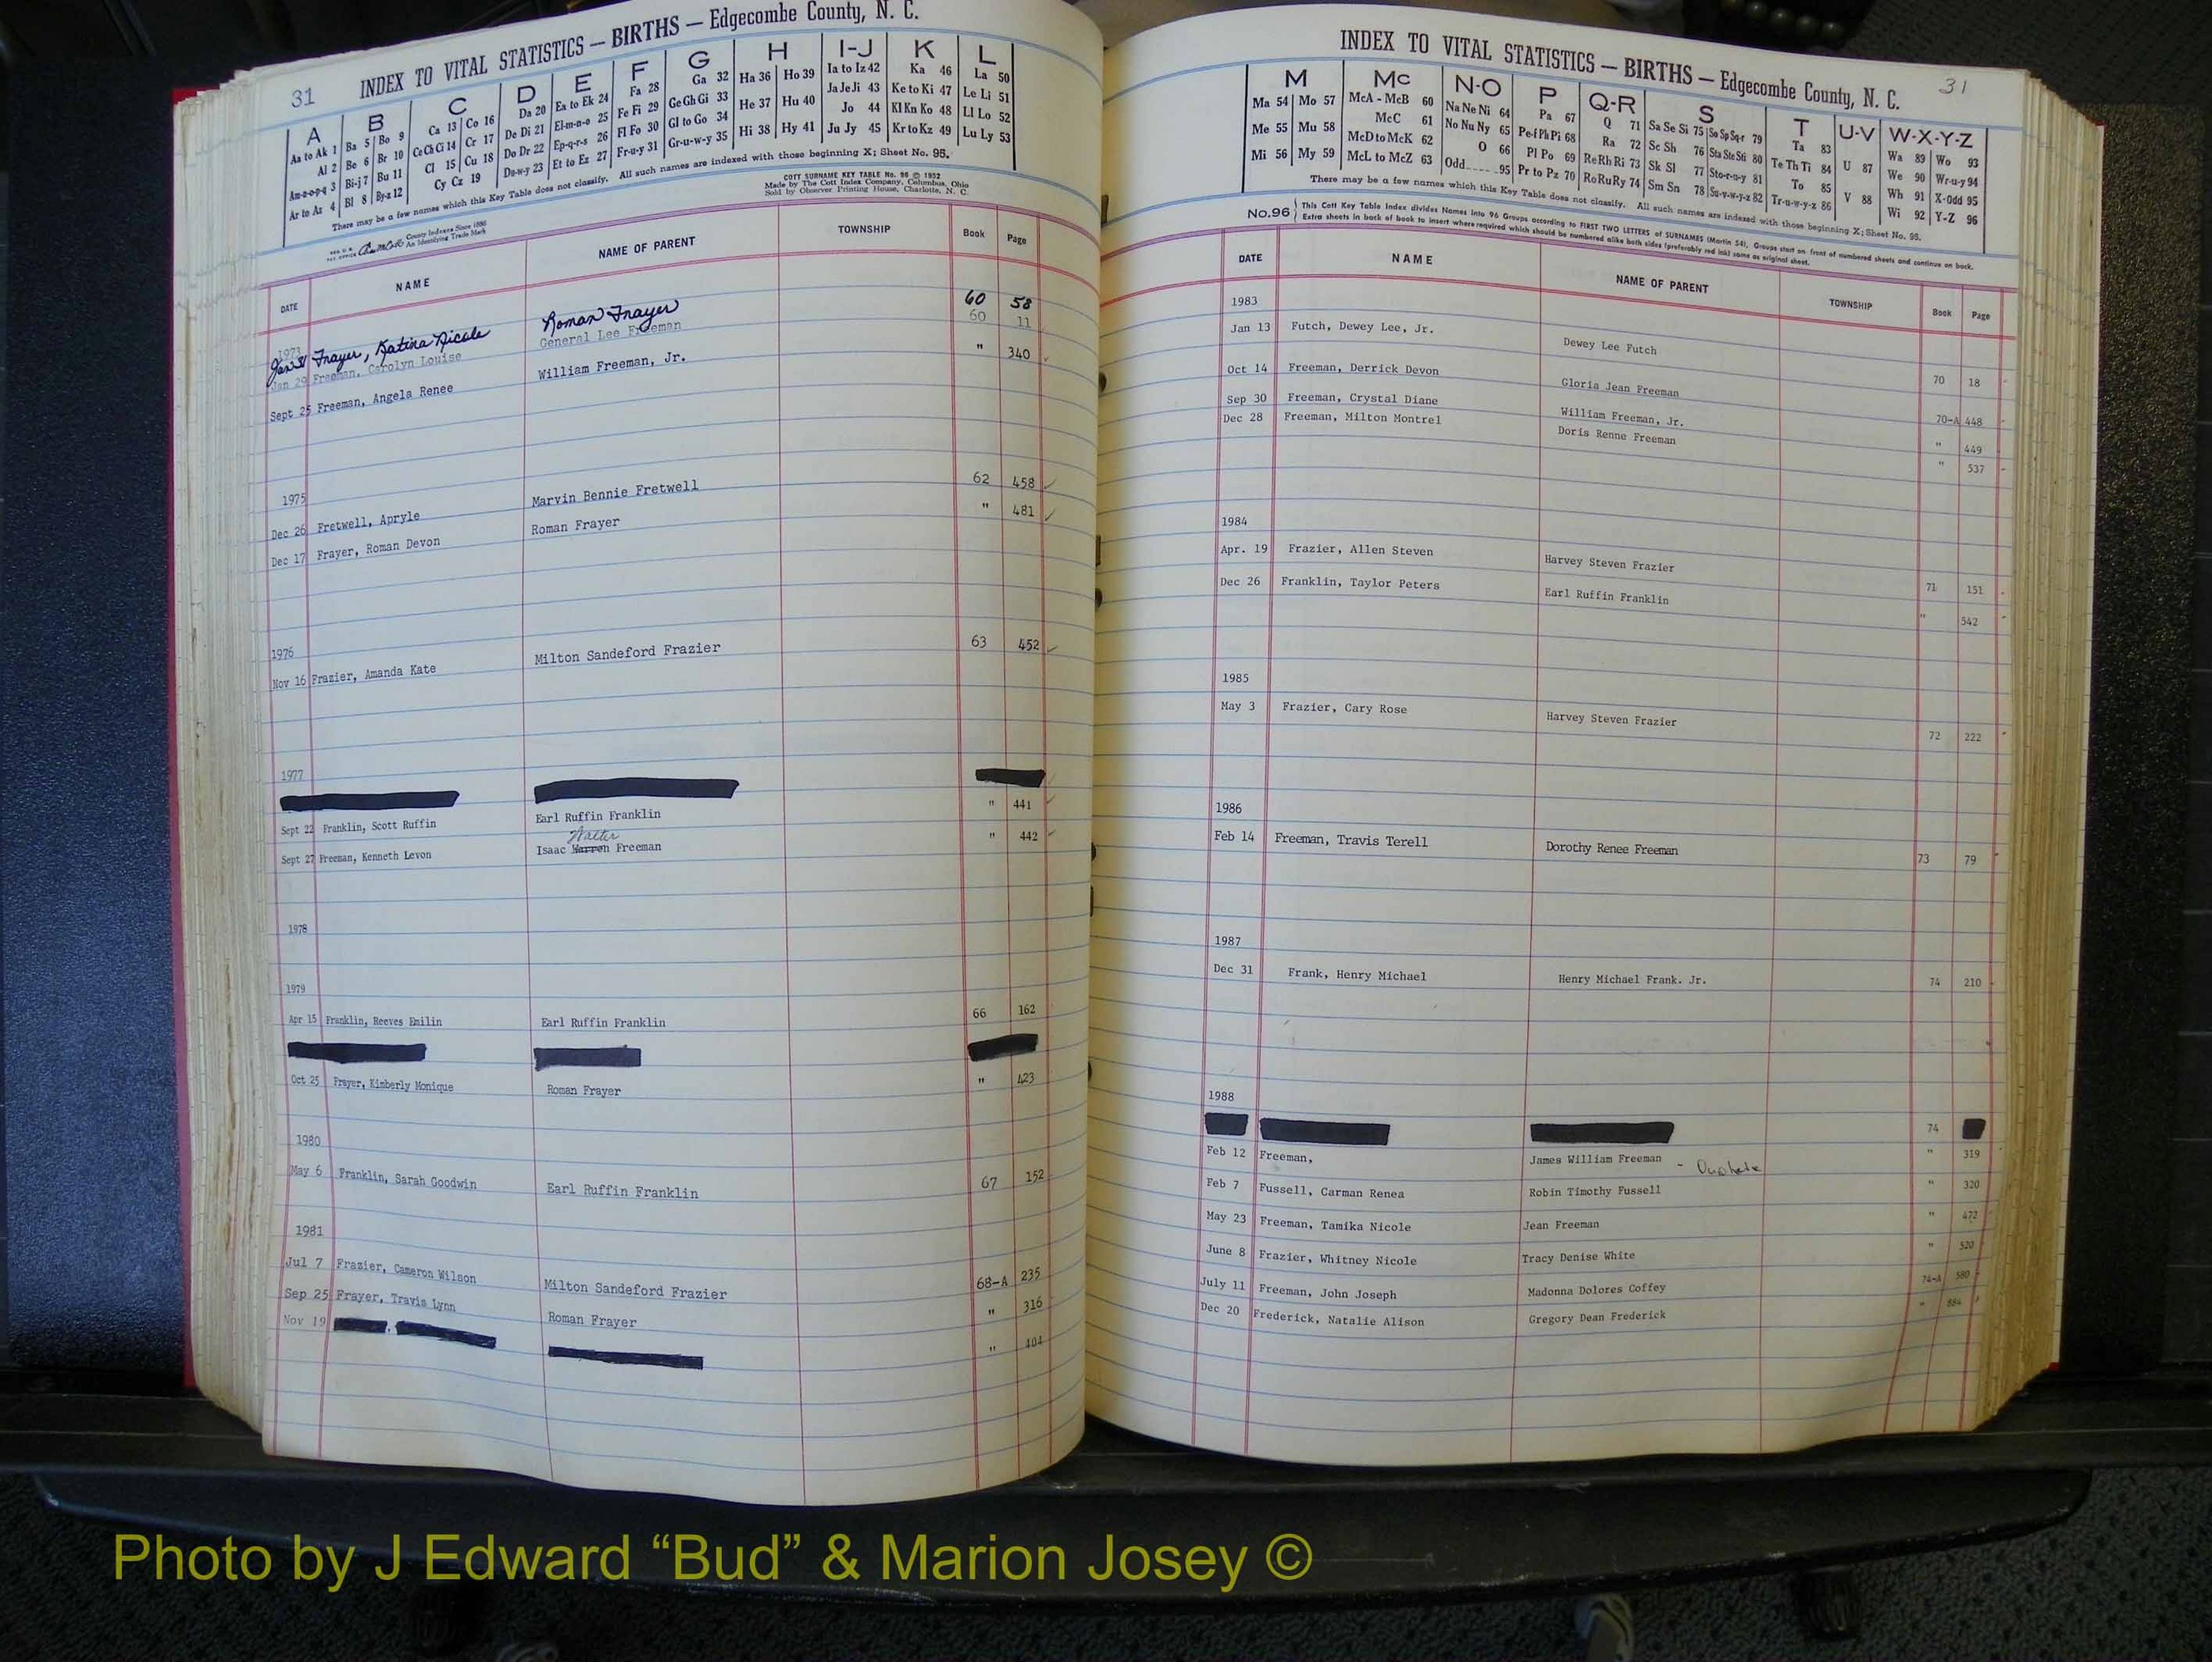 31 INDEX TO VITAL STATISTICS — BIRTHS — Edgecombe County, N. C.
A B C D E F G H I-J K L
Aa to Ak 1 Ba 5 Bo 9 Ca 13 Co 16 Da 20 Ea to Ek 24 Fa 28 Ga 32 Ha 36 Ho 39 Ia to Iz 42 Ka 46 La 50
Al 2 Be 6 Br 10 Ce Ch Ci 14 Cr 17 De Di 21 El-m-n-o 25 Fe Fi 29 Ge Gh Gi 33 He 37 Hu 40 Ja Je Ji 43 Ke to Ki 47 Le Li 51
Am-n-o-p-q 3 Bi-j 7 Bu 11 Cl 15 Cu 18 Do Dr 22 Ep-q-r-s 26 Fl Fo 30 Gl to Go 34 Hi 38 Hy 41 Jo 44 Kl Kn Ko 48 Ll Lo 52
Ar to Az 4 Bl 8 By-z 12 Cy Cz 19 Du-w-y 23 Et to Ez 27 Fr-u-y 31 Gr-u-w-y 35 Ju Jy 45 Kr to Kz 49 Lu Ly 53
There may be a few names which this Key Table does not classify. All such names are indexed with those beginning X; Sheet No. 95.
COTT SURNAME KEY TABLE No. 96 © 1952
Made by The Cott Index Company, Columbus, Ohio
Sold by Observer Printing House, Charlotte, N. C.
County Indexes Since 1888
An Identifying Trade Mark
DATE NAME NAME OF PARENT TOWNSHIP Book Page
1973
Frayer, Katina Nicole Roman Frayer 60 58
Jan 29 Freeman, Carolyn Louise General Lee Freeman 60 11
Sept 25 Freeman, Angela Renee William Freeman, Jr. " 340
1975
Dec 26 Fretwell, Apryle Marvin Bennie Fretwell 62 458
Dec 17 Frayer, Roman Devon Roman Frayer " 481
1976
Nov 16 Frazier, Amanda Kate Milton Sandeford Frazier 63 452
1977
Sept 22 Franklin, Scott Ruffin Earl Ruffin Franklin " 441
Walter
Sept 27 Freeman, Kenneth Levon Isaac Warren Freeman " 442
1978
1979
Apr 15 Franklin, Reeves Emilin Earl Ruffin Franklin 66 162
Oct 25 Frayer, Kimberly Monique Roman Frayer " 423
1980
May 6 Franklin, Sarah Goodwin Earl Ruffin Franklin 67 152
1981
Jul 7 Frazier, Cameron Wilson Milton Sandeford Frazier 68-A 235
Sep 25 Frayer, Travis Lynn Roman Frayer " 316
Nov 19 " 404
INDEX TO VITAL STATISTICS — BIRTHS — Edgecombe County, N. C. 31
M Mc N-O P Q-R S T U-V W-X-Y-Z
Ma 54 Mo 57 McA - McB 60 Na Ne Ni 64 Pa 67 Q 71 Sa Se Si 75 So Sp Sq-r 79 Ta 83 U 87 Wa 89 Wo 93
Me 55 Mu 58 McC 61 No Nu Ny 65 Pe-f Ph Pi 68 Ra 72 Sc Sh 76 Sta Ste Sti 80 Te Th Ti 84 V 88 We 90 Wr-u-y 94
Mi 56 My 59 McD to McK 62 O 66 Pl Po 69 Re Rh Ri 73 Sk Sl 77 Sto-r-u-y 81 To 85 Wh 91 X-Odd 95
McL to McZ 63 Odd 95 Pr to Pz 70 Ro Ru Ry 74 Sm Sn 78 Su-v-w-y-z 82 Tr-u-w-y-z 86 Wi 92 Y-Z 96
There may be a few names which this Key Table does not classify. All such names are indexed with those beginning X; Sheet No. 95.
No.96 This Cott Key Table Index divides Names into 96 Groups according to FIRST TWO LETTERS of SURNAMES (Martin 54). Groups start on front of numbered sheets and continue on back.
Extra sheets in back of book to insert where required which should be numbered alike both sides (preferably red ink) same as original sheet.
DATE NAME NAME OF PARENT TOWNSHIP Book Page
1983
Jan 13 Futch, Dewey Lee, Jr. Dewey Lee Futch 70 18
Oct 14 Freeman, Derrick Devon Gloria Jean Freeman 70-A 448
Sep 30 Freeman, Crystal Diane William Freeman, Jr. " 449
Dec 28 Freeman, Milton Montrel Doris Renne Freeman " 537
1984
Apr. 19 Frazier, Allen Steven Harvey Steven Frazier 71 151
Dec 26 Franklin, Taylor Peters Earl Ruffin Franklin " 542
1985
May 3 Frazier, Cary Rose Harvey Steven Frazier 72 222
1986
Feb 14 Freeman, Travis Terell Dorothy Renee Freeman 73 79
1987
Dec 31 Frank, Henry Michael Henry Michael Frank. Jr. 74 210
1988
74
Feb 12 Freeman, James William Freeman - " 319
Feb 7 Fussell, Carman Renea Robin Timothy Fussell " 320
May 23 Freeman, Tamika Nicole Jean Freeman " 472
June 8 Frazier, Whitney Nicole Tracy Denise White " 520
July 11 Freeman, John Joseph Madonna Dolores Coffey 74-A 580
Dec 20 Frederick, Natalie Alison Gregory Dean Frederick " 884
Photo by J Edward “Bud” & Marion Josey ©